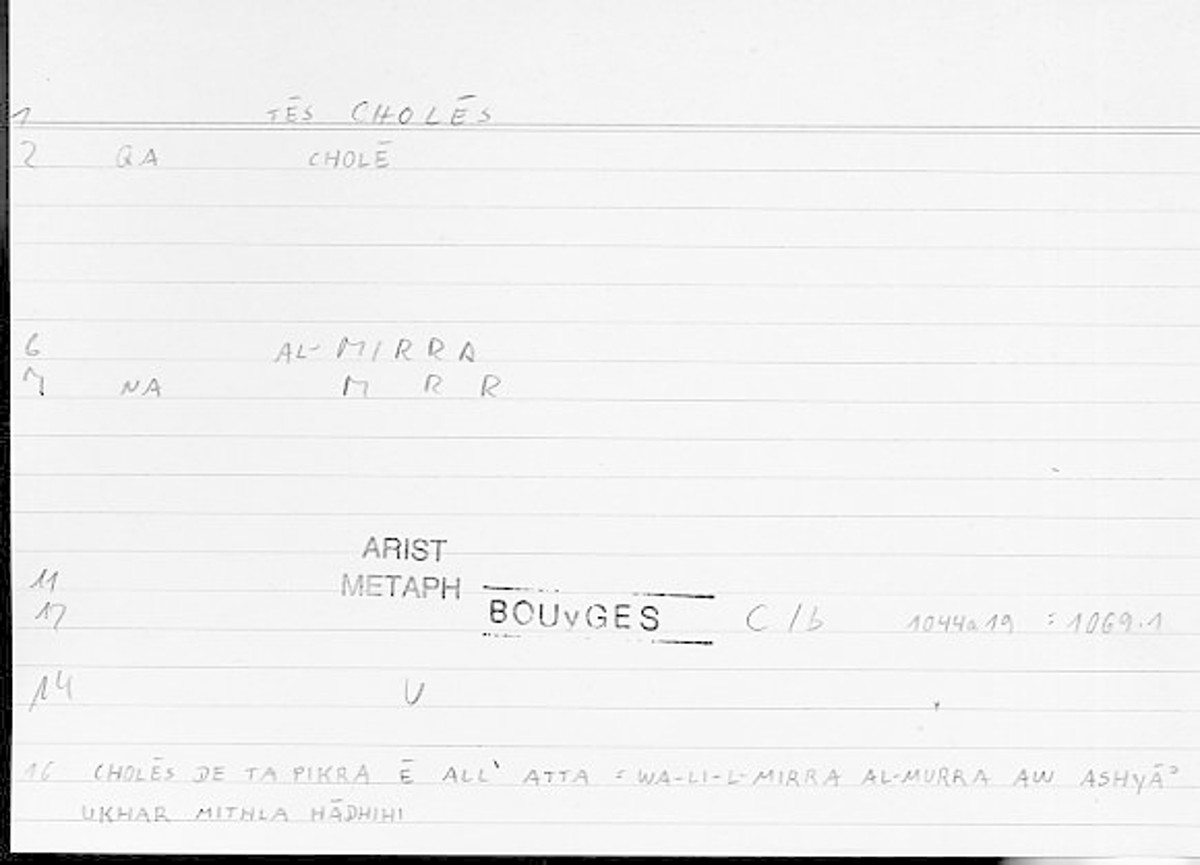 1 TĒS CHOLĒS
2 QA CHOLĒ
6 AL-MIRRA
7 NA M R R
ARIST
11 METAPH
12 BOUvGES C 1b 1044a19 : 1069.1
14 U
16 CHOLĒS DE TA PIKRA Ē ALL' ATTA : WA-LI-L-MIRRA AL-MURRA AW ASHYĀʾ
UKHAR MITHLA HĀDHIHI